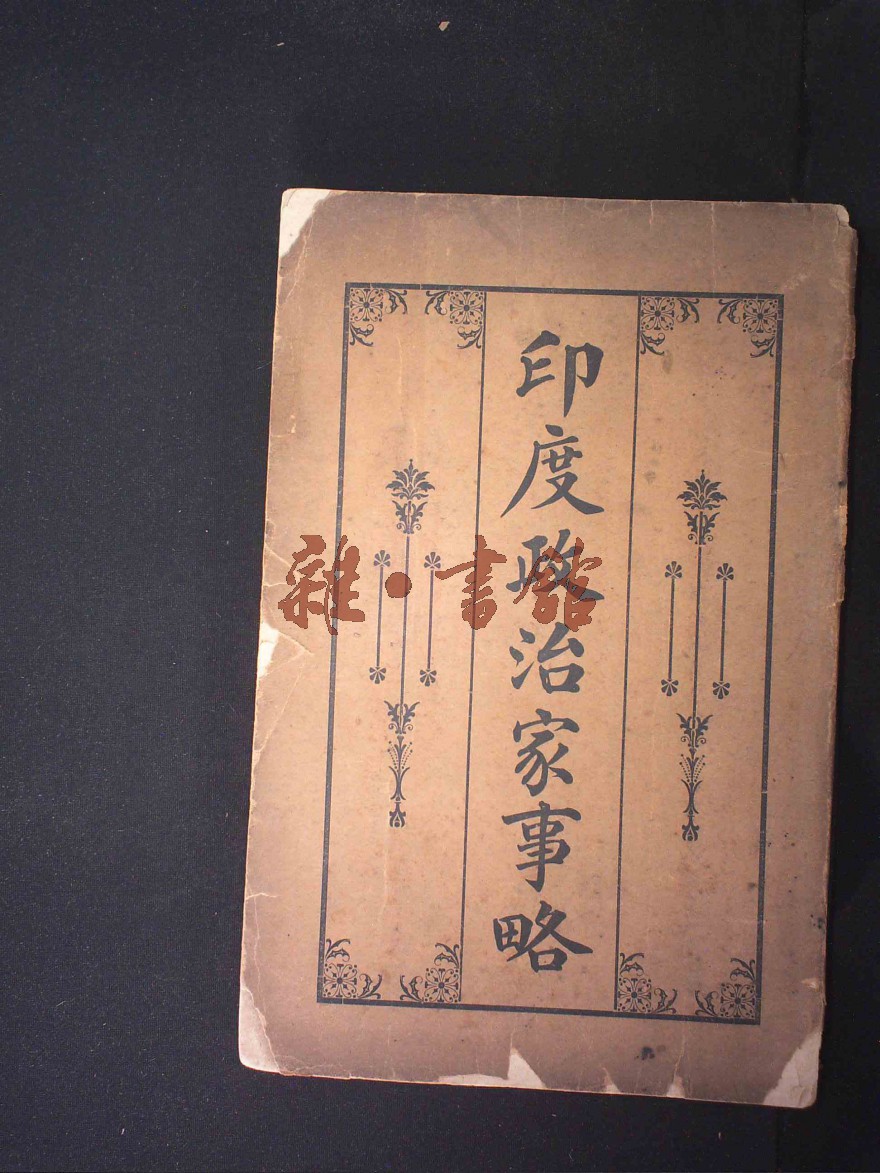 印度政治家事略
雜·書館